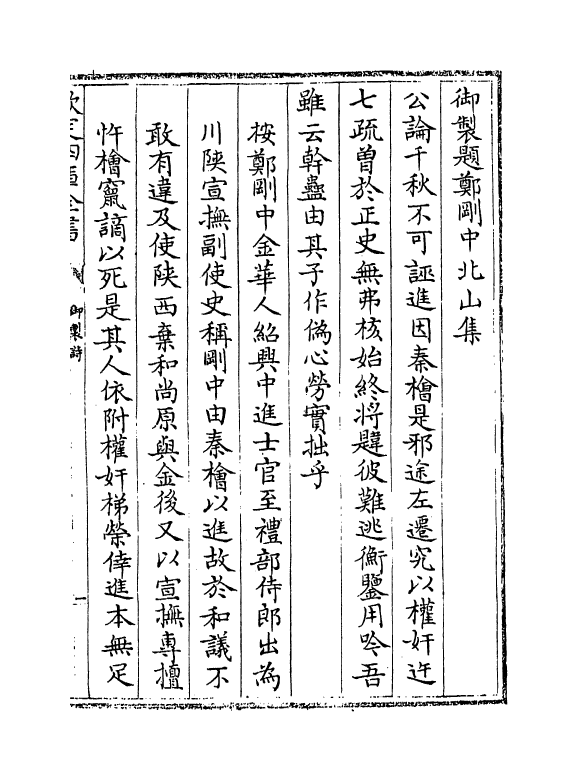 御製題鄭剛中北山集
公論千秋不可誣進因秦檜是邪途左遷究以權奸迕
七疏曽於正史無弗核始終将韙彼難逃衡鑒用吟吾
雖云幹蠱由其子作偽心勞實拙乎
按鄭剛中金華人紹興中進士官至禮部侍郎出為
川陝宣撫副使史稱剛中由秦檜以進故於和議不
敢有違及使陝西棄和尚原與金後又以宣撫專擅
忤檜竄謫以死是其人依附權奸梯榮倖進本無足
欽定四庫全書
御製詩
一